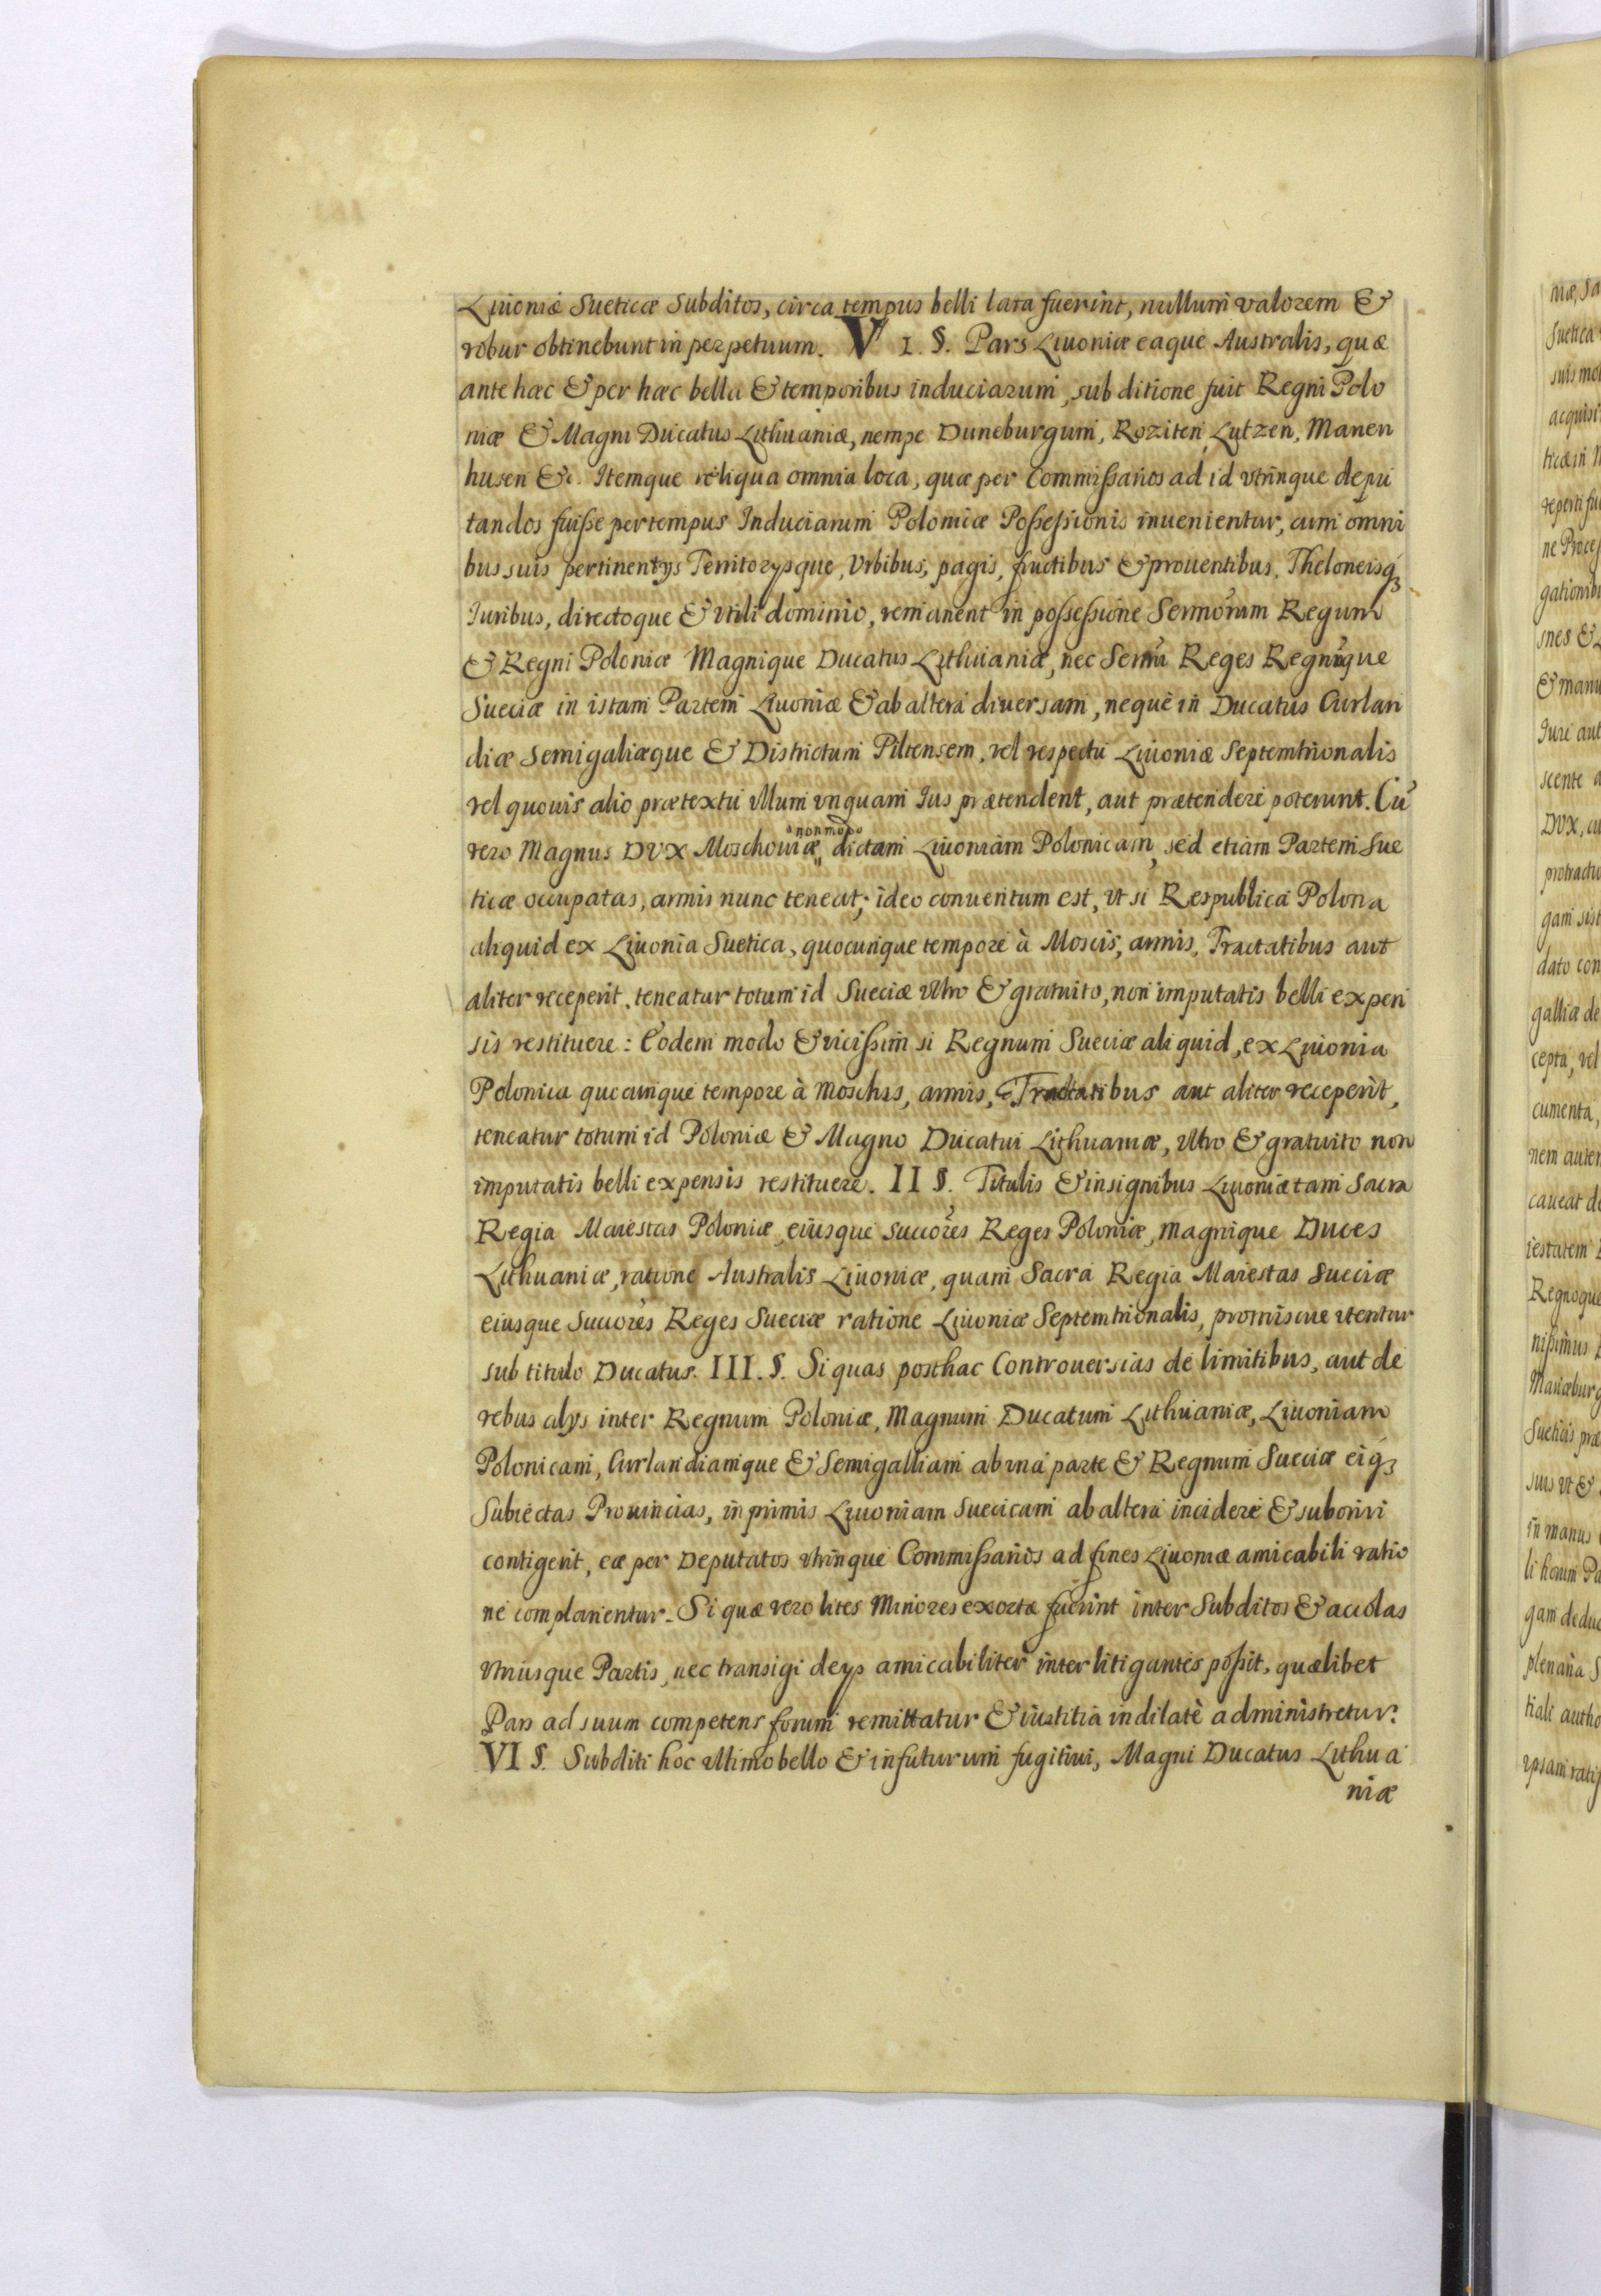 Liuoniæ Sueticæ Subditos, circa tempus belli lata fuerint, nullum valorem &
robur obtinebunt in perpetuum. V 1. §. Pars Liuoniæ eaque Australis, quæ
ante hæc & per hæc bella & temporibus induciarum, sub ditione fuit Regni Polo
niæ & Magni Ducatus Lithuaniæ, nempe Duneburgum, Roziten Lutzen, Manen
husen &c. Itemque reliqua omnia loca, quæ per Commissarios ad id vtrinque depu
tandos fuisse per tempus Induciarum Polonicæ Possessionis inuenientur, cum omni
bus suis pertinentys Territorysque, Vrbibus, pagis, fructibus & prouentibus, Theloneisqꝫ
Iuribus, directoque & vtili dominio, remanent in possessione Sermorum Regum
& Regni Poloniæ Magnique Ducatus Lithuaniæ, nec Sermi Reges Regnique
Sueciæ in istam Partem Liuoniæ & ab altera diuersam, neque in Ducatus Curlan
diæ Semigaliæque & Districtum Piltensem, vel respectu Liuoniæ Septemtrionalis
vel quouis alio prætextu vllum vnquam Ius prætendent, aut prætendere poterunt. Cu
vero Magnus DVX Moschouiæ non modo dictam Liuoniam Polonicam, sed etiam Partem Sue
ticæ occupatas, armis nunc teneat; ideo conuentum est, vt si Respublica Polona
aliquid ex Liuonia Suetica, quocunque tempore à Moscis, armis, Tractatibus aut
aliter receperit, teneatur totum id Sueciæ vltro & gratuito, non imputatis belli expen
sis restituere: Eodem modo & vicissim si Regnum Sueciæ aliquid, ex Liuonia
Polonica quecunque tempore à Moschis, armis, Tractatibus aut aliter receperit,
teneatur totum id Poloniæ & Magno Ducatui Lithuaniæ, vltro & gratuito non
imputatis belli expensis restituere. II §. Titulis & insignibus Liuoniæ tam Sacra
Regia Maiestas Poloniæ, eiusque succores Reges Poloniæ, Magnique Duces
Lithuaniæ, ratione Australis Liuoniæ, quam Sacra Regia Maiestas Sueciæ
eiusque Succores Reges Sueciæ ratione Liuoniæ Septemtrionalis, promiscue vtentur
sub titulo Ducatus. III. §. Si quas posthac Controuersias de limitibus, aut de
rebus alys inter Regnum Poloniæ, Magnum Ducatum Lithuaniæ, Liuoniam
Polonicam, Curlandiamque & Semigalliam ab vna parte & Regnum Sueciæ eiqꝫ
Subiectas Prouincias, in primis Liuoniam Suecicam ab altera incidere & suboriri
contigerit, eæ per Deputatos vtrinque Commissarios ad fines Liuoniæ amicabili ratio
ne complanentur. Si quæ vero lites Minores exortæ fuerint inter Subditos & accolas
vtriusque Partis, nec transigi de ys amicabiliter inter litigantes possit, quælibet
Pars ad suum competens forum remittatur & iustitia indilatè administretur.
VI §. Subditi hoc vltimo bello & infuturum fugitiui, Magni Ducatus Lithua
niæ